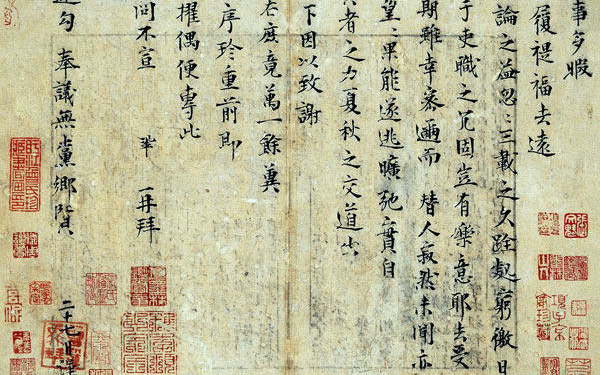 事多暇
履禔福去遠
論之益忽〻三載之久跧處窮徼日
于吏職之冗固豈有樂意耶去受
期雖幸密邇而替人寂然未聞亦
望〻果能遂逃曠弛實自
者之力夏秋之交道出
下因以致謝
右庶竟萬一餘冀
序珍重前即
擢偶便專此
問不宣 鞏再拜
運勾奉議無黨鄉賢
二十七日謹
項子京家珍藏